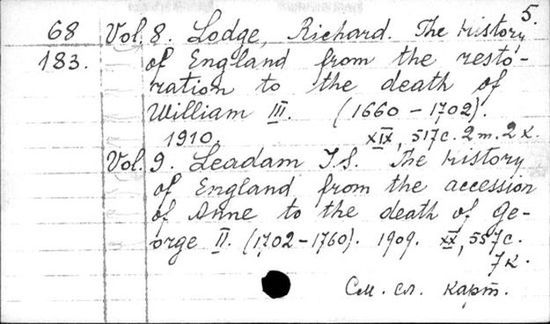 5.
68 Vol. 8. Lodge, Richard. The history
183. of England from the resto-
ration to the death of
William III. (1660 - 1702).
1910. XIX, 517 с. 2 т. 2 к.
Vol. 9. Leadam I.S. The history
of England from the accession
of Anne to the death of Ge-
orge II. (1702-1760). 1909. XX, 557 с.
7 к.
См. сл. карт.